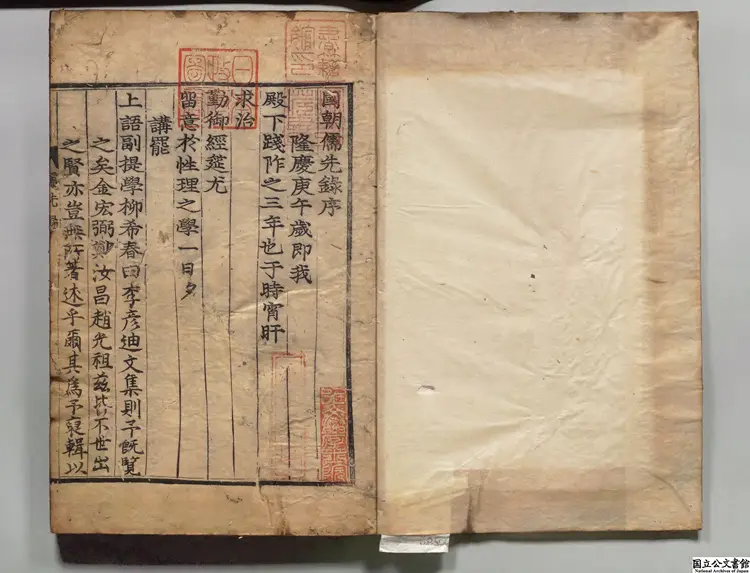 國朝儒先錄序
隆慶庚午歲即我
殿下踐阼之三年也于時宵旰
求治
勤御經筵尤
留意於性理之學一日夕
講罷
上語副提學柳希春曰李彦迪文集則予既覽
之矣金宏弼鄭汝昌趙光祖玆皆不世出
之賢亦豈無所著述乎爾其爲予裒輯以
国立公文書館
National Archives of Japan